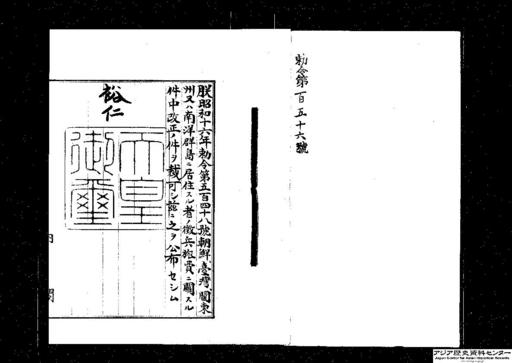 勅令第百五十六號
朕昭和十六年勅令第五百四十八號朝鮮、臺灣、關東
州又ハ南洋群島ニ居住スル者ノ徴兵旅費ニ關スル
件中改正ノ件ヲ裁可シ茲ニ之ヲ公布セシム
裕仁
天皇
御璽
内閣
アジア歴史資料センター
Japan Center for Asian Historical Records